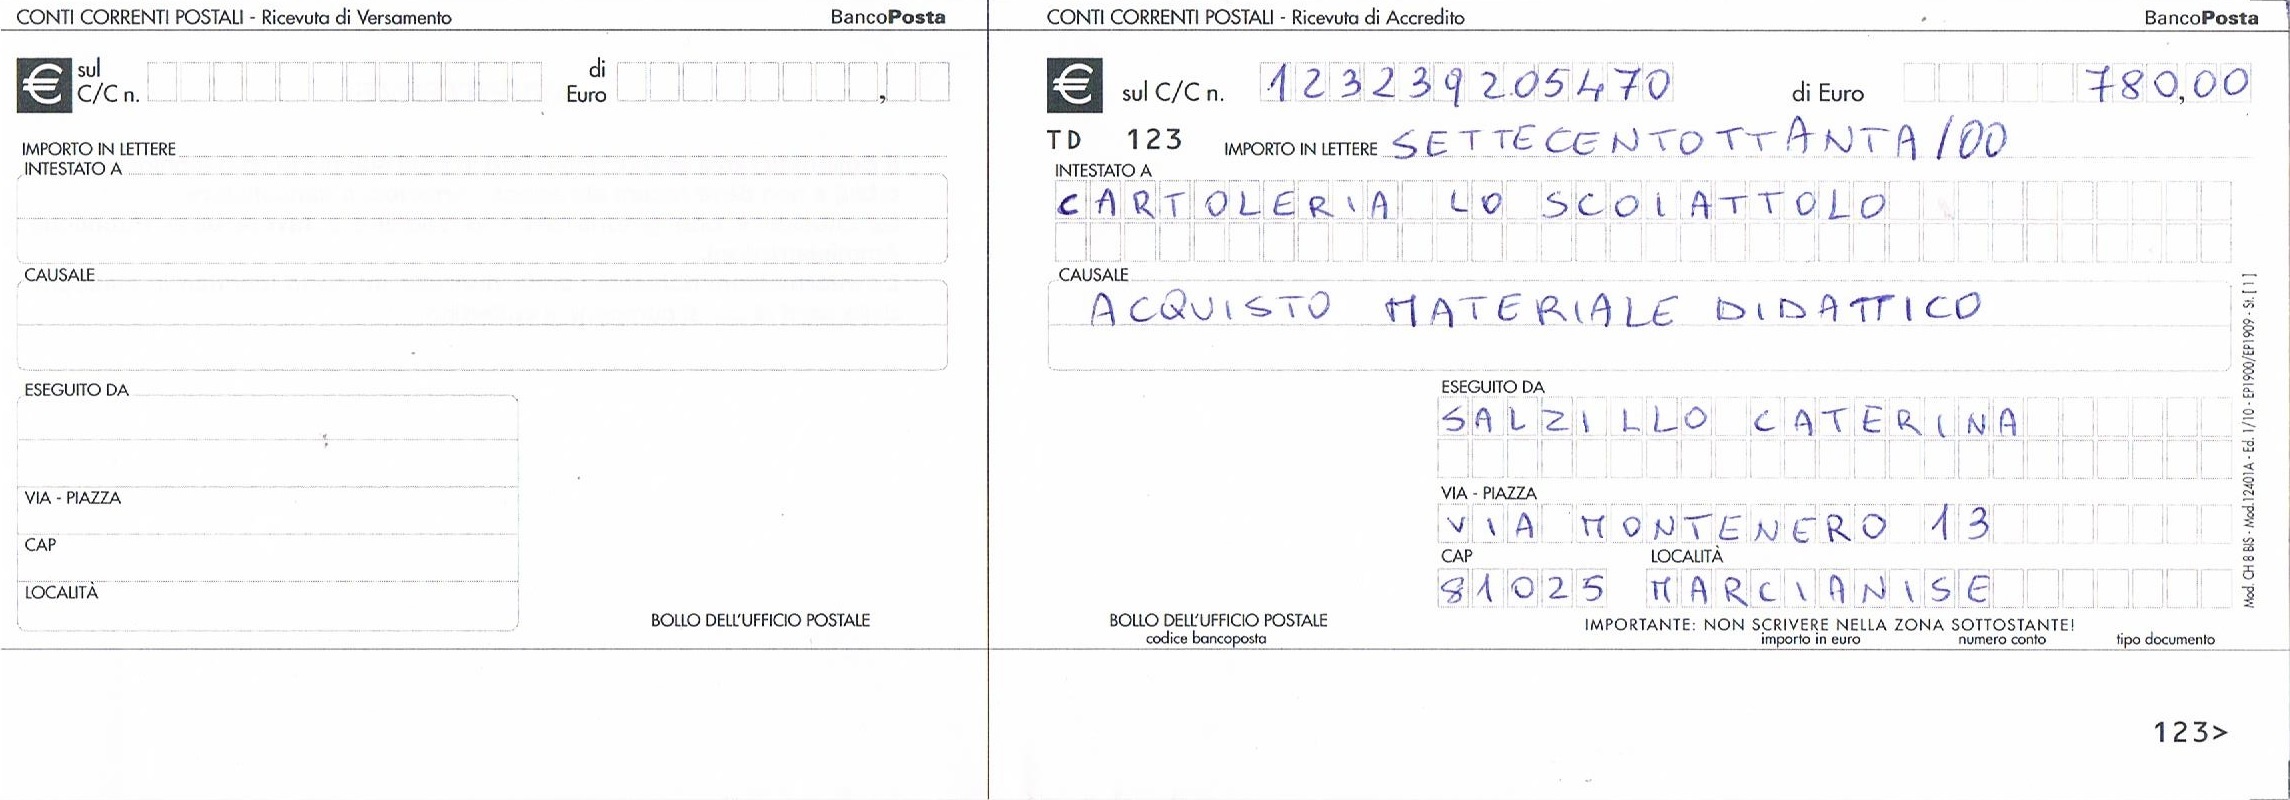 CONTI CORRENTI POSTALI - Ricevuta di Versamento BancoPosta
€ sul C/C n. di Euro ,
IMPORTO IN LETTERE
INTESTATO A
CAUSALE
ESEGUITO DA
VIA - PIAZZA
CAP
LOCALITÀ
BOLLO DELL'UFFICIO POSTALE
CONTI CORRENTI POSTALI - Ricevuta di Accredito BancoPosta
€ sul C/C n. 123239205470 di Euro 780,00
TD 123 IMPORTO IN LETTERE SETTECENTOTTANTA/00
INTESTATO A
CARTOLERIA LO SCOIATTOLO
CAUSALE
ACQUISTO MATERIALE DIDATTICO
ESEGUITO DA
SALZILLO CATERINA
VIA - PIAZZA
VIA MONTENERO 13
CAP LOCALITÀ
81025 MARCIANISE
BOLLO DELL'UFFICIO POSTALE IMPORTANTE: NON SCRIVERE NELLA ZONA SOTTOSTANTE!
codice bancoposta importo in euro numero conto tipo documento
Mod. CH 8 BIS - Mod.12401A - Ed. 1/10 - EP1900/EP1909 - St. [1]
123>